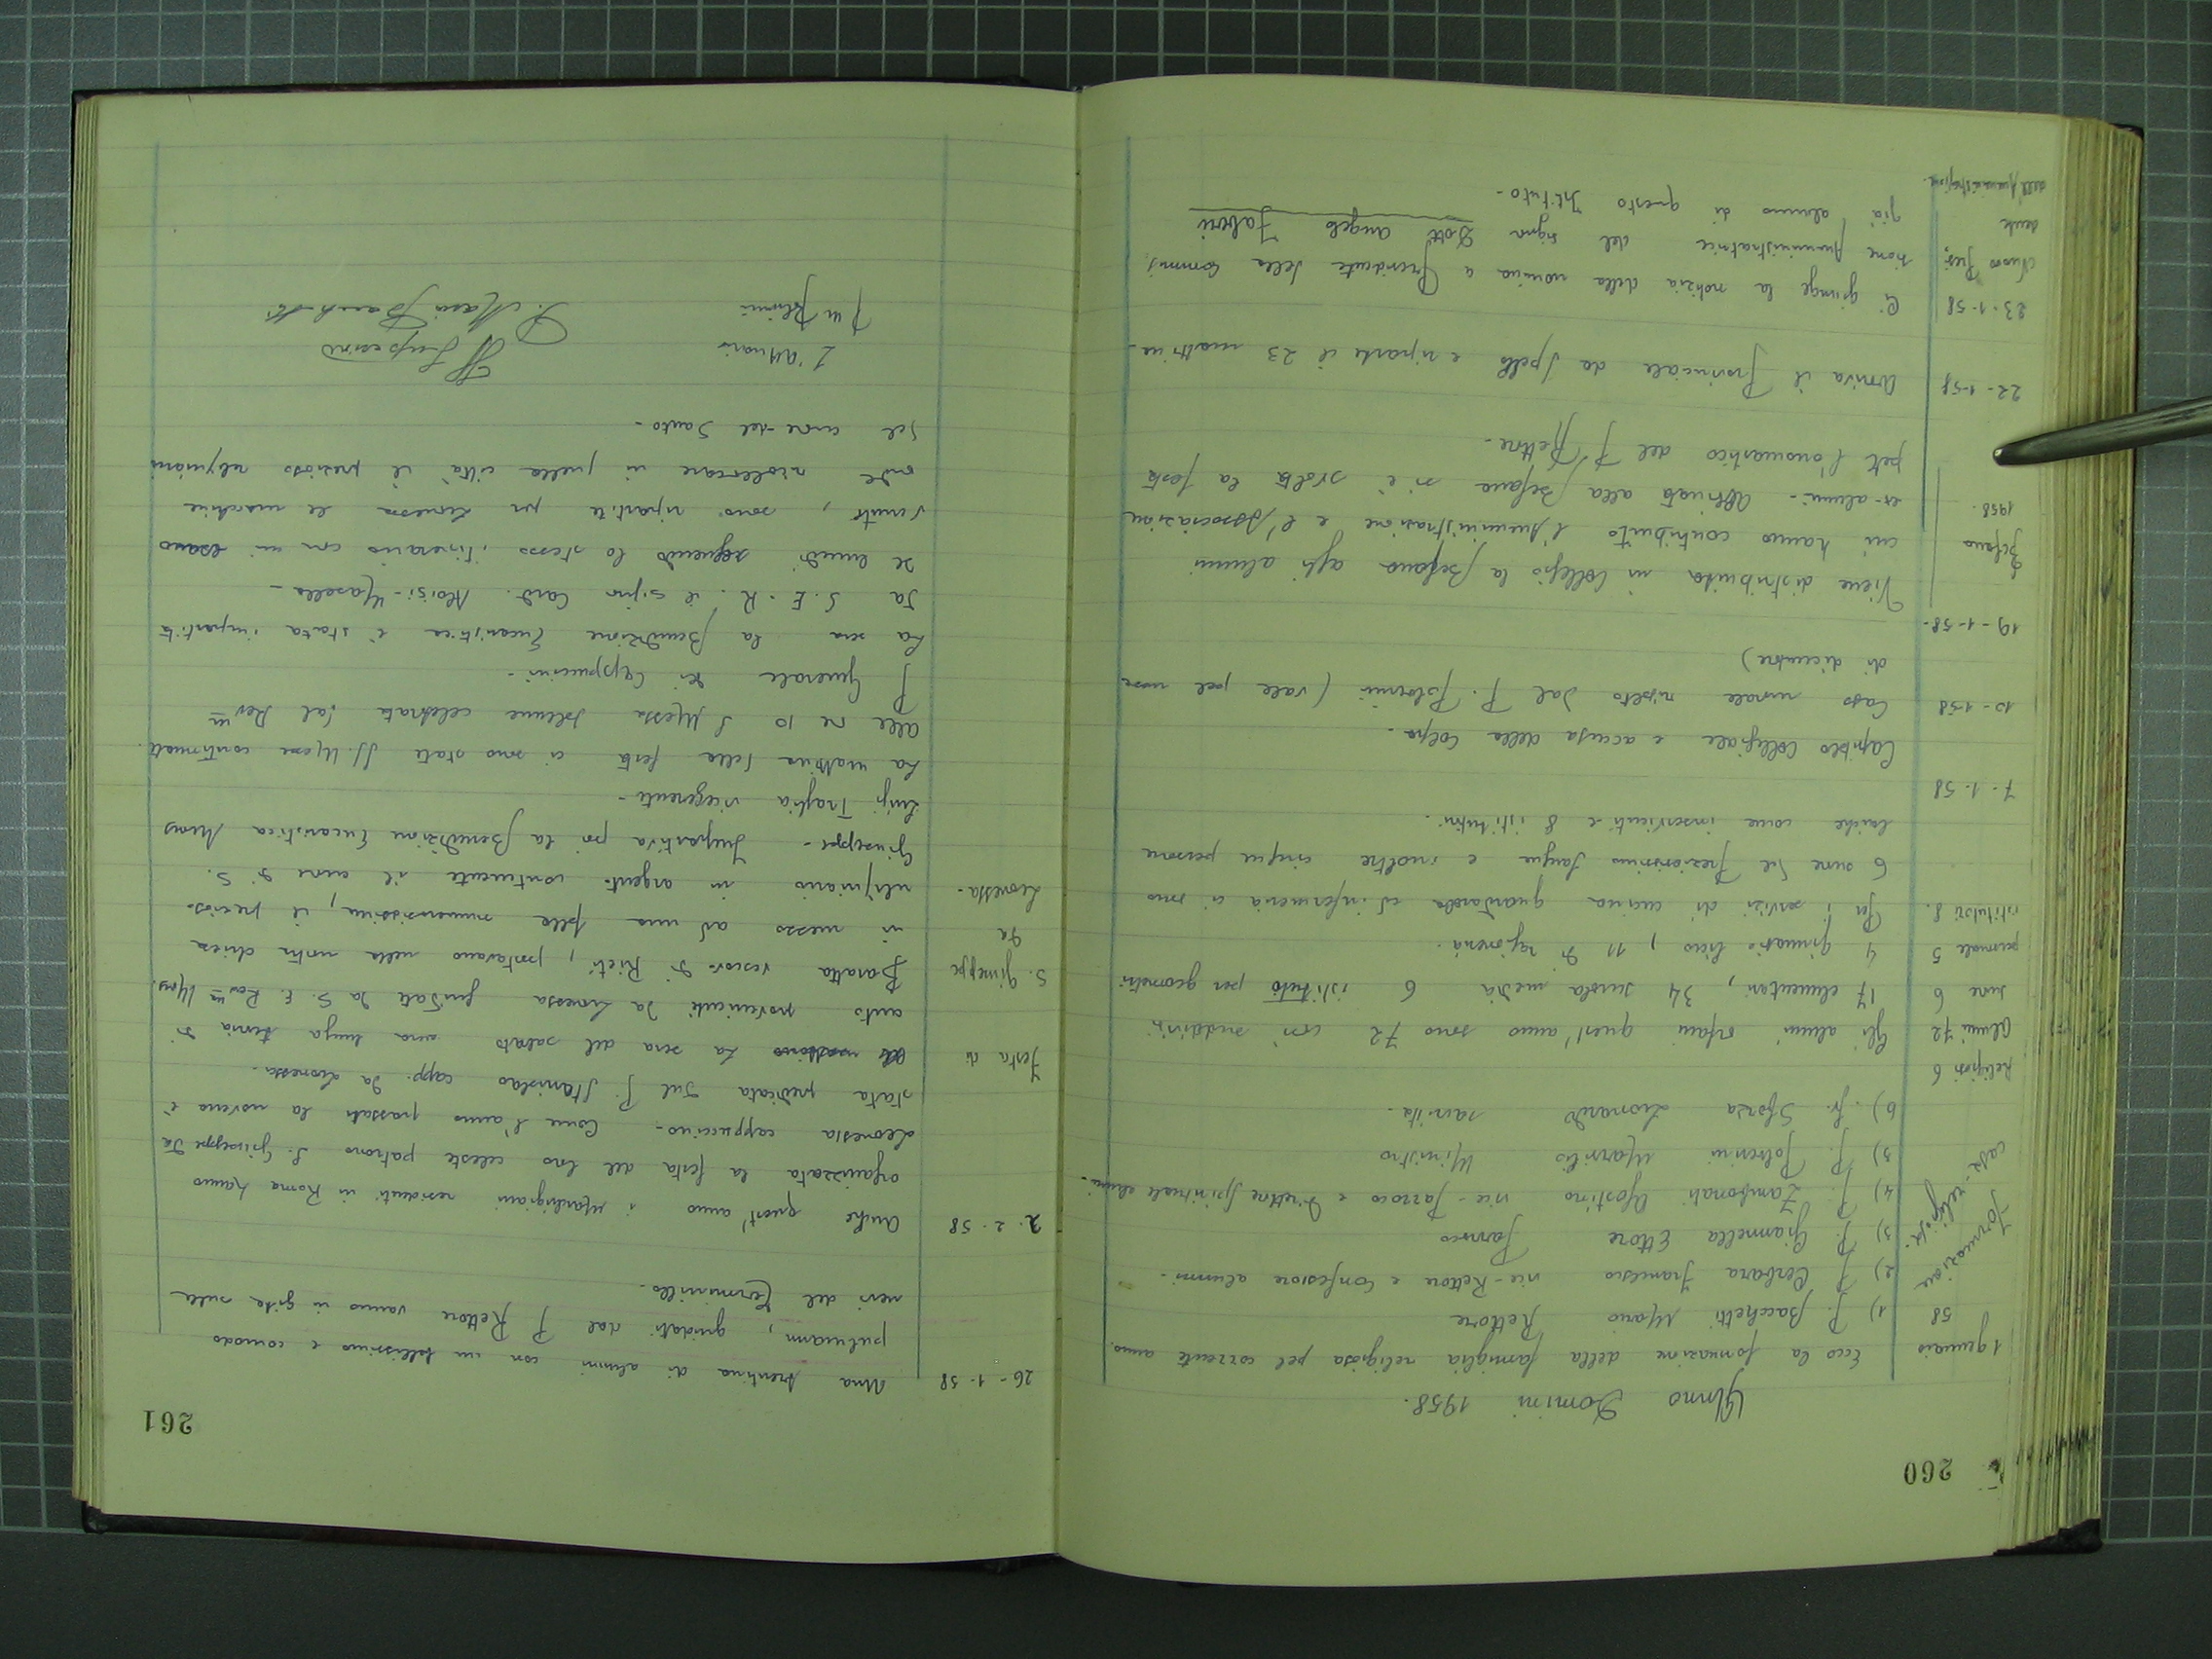 260
Anno Domini 1958.
1 gennaio 58 Ecco la formazione della famiglia religiosa pel corrente anno.
Formazione casa religiosa.
1) P. Bacchetti Mario Rettore
2) P. Cerbara Francesco vice-Rettore e Confessore alunni.
3) P. Giannella Ettore Parroco
4) P. Zambonati Agostino vice-Parroco e Direttore Spirituale alunni.
5) P. Polverini Marsilio Ministro
6) fr. Sforza Leonardo
Religiosi 6
Alunni 72 Gli alunni orfani quest'anno sono 72 così suddivisi
suore 6 17 elementari, 34 scuola media 6 istituto per geometri
personale 5 4 ginnasio liceo, 11 di ragioneria.
istitutori 8. Per i servizi di cucina guardaroba ed infermeria ci sono
6 suore del Preziosissimo Sangue e inoltre cinque persone
laiche come inservienti e 8 istitutori.
7-1-58
Capitolo Collegiale e accusa della Colpa.
12-1-58 Caso morale risolto dal P. Polverini (vale pel mese
di dicembre)
19-1-58-
Befana 1958. Viene distribuita in Collegio la Befana agli alunni
cui hanno contribuito l'Amministrazione e l'Associazione
ex-alunni- Abbinata alla Befana si è svolta la festa
pel l'onomastico del P Rettore-
22-1-58 Arriva il Provinciale da Spello e riparte il 23 mattina-
23-1-58 Ci giunge la notizia della nomina a Presidente della Commis
Nuovo Presidente dell'Amministrazione. sione Amministratrice del signor Dott Angelo Fabrii
già alunno di questo Istituto-
261
26-1-58 Una trentina di alunni con un bellissimo e comodo
pulmann, guidati dal P Rettore vanno in gita sulle
nevi del Terminillo-
2-2-58 Anche quest'anno i Mardigiani residenti in Roma hanno
organizzata la festa del loro celeste patrono S. Giuseppe da
Leonessa cappuccino- Come l'anno passato la novena è
stata predicata dal P. Stanislao capp. da Leonessa.
Festa di La sera del sabato una lunga teoria di
auto provenienti da Leonessa guidati da S. E. Rev.ma Mons.
S. Giuseppe Baratta vescovo di Rieti, portavano nella nostra chiesa
da in mezzo ad una folla numerosissima, il prezioso
Leonessa- reliquiario in argento contenente il cuore di S.
Giuseppe- Impartiva poi la Benedizione Eucaristica Mons
Luigi Traglia vicegerente-
La mattina della festa ci sono state SS. Messe continuate.
alle ore 10 S Messa solenne celebrata dal Rev.mo
P Generale dei Cappuccini-
La sera la Benedizione Eucaristica è stata impartita
da S. E. R. il signor Card. Aloisi-Masella-
Il lunedì seguendo lo stesso itinerario con un
sono ripartite per Leonessa le macchine
onde ricollocare in quella città il prezioso reliquiario
del cuore del Santo-
L'Attuario
P M Polverini
P. Mario Bacchetti